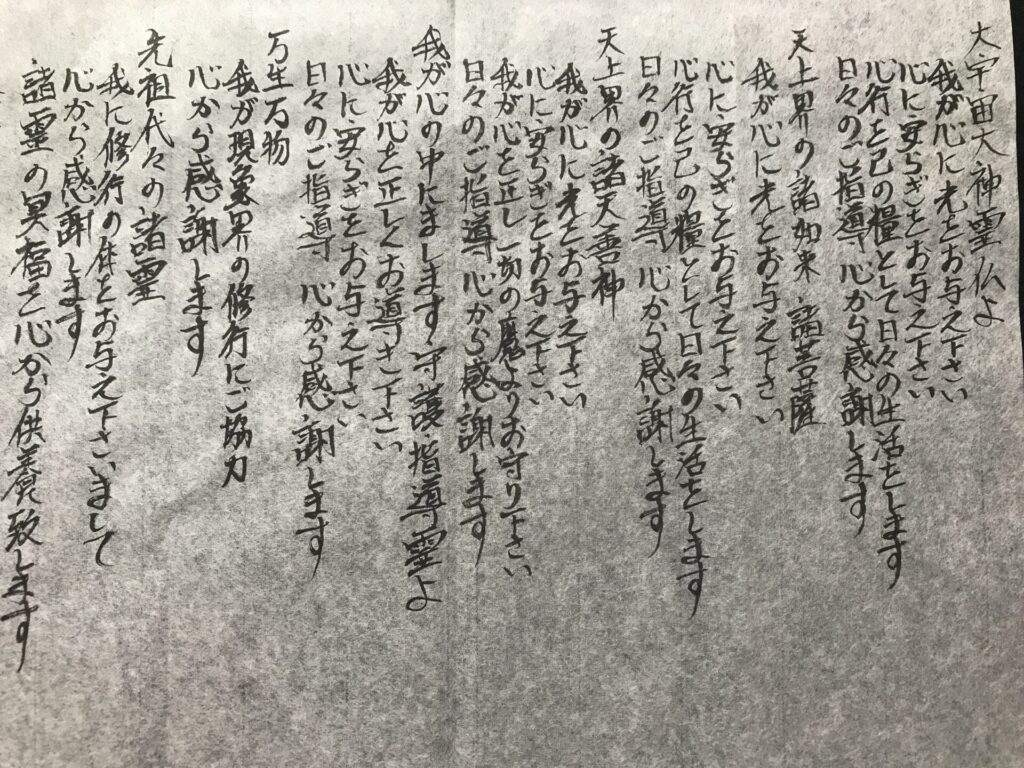 大宇宙大神霊仏よ
我が心に光とお与え下さい
心に安らぎとお与え下さい
心行を己の糧として日々の生活をします
日々のご指導 心から感謝します
天上界の諸如来 諸菩薩
我が心に光とお与え下さい
心に安らぎとお与え下さい
心行を己の糧として日々の生活をします
日々のご指導 心から感謝します
天上界の諸天善神
我が心に光をお与え下さい
心に安らぎをお与え下さい
我が心を正し一切の魔よりお守り下さい
日々のご指導 心から感謝します
我が心の中にまします守護・指導霊よ
我が心を正しくお導き下さい
心に安らぎをお与え下さい
日々のご指導 心から感謝します
万生万物
我が現象界の修行にご協力
心から感謝します
先祖代々の諸霊
我に修行の体をお与え下さいまして
心から感謝します
諸霊の冥福を心から供養致します